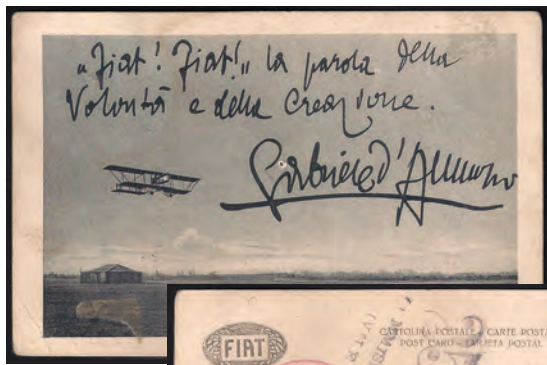 „Fiat! Fiat!„ la parola della
Volontà e della Creazione.
Gabriele d'Annunzio
FIAT
CARTOLINA POSTALE - CARTE POSTALE
POST CARD - TARJETA POSTAL